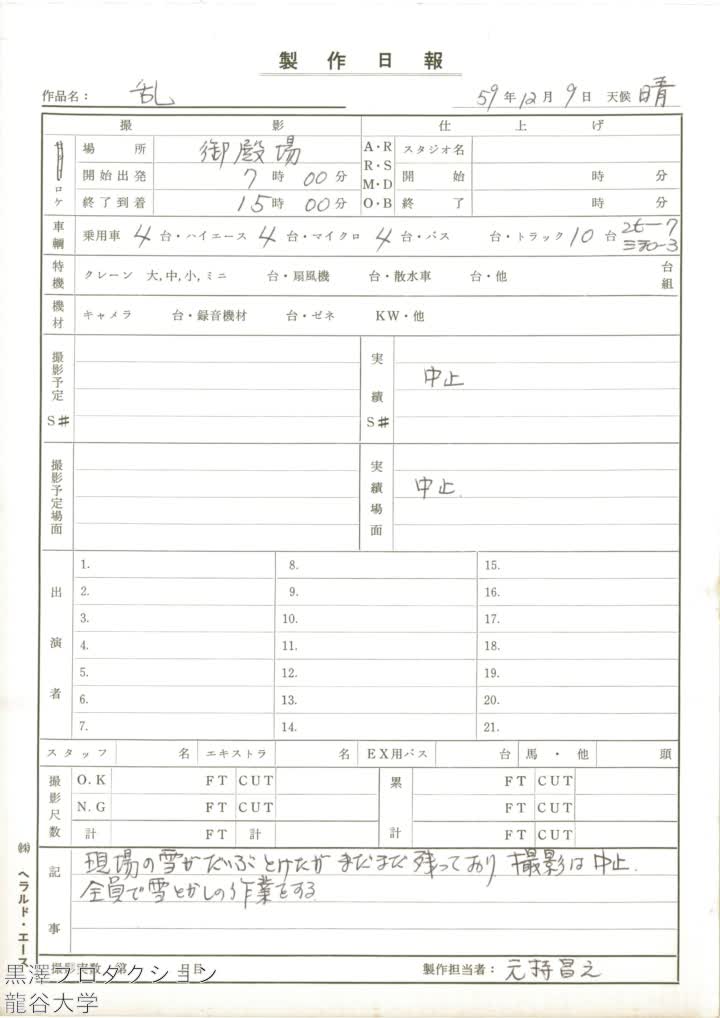 製作日報
作品名： 乱 59年12月9日 天候 晴
撮影 仕上げ
セット ロケ 場所 御殿場 A・R R・S M・D O・B スタジオ名
開始出発 7時00分 開始 時 分
終了到着 15時00分 終了 時 分
車輌 乗用車 4台・ハイエース 4台・マイクロ 4台・バス 台・トラック 10台
特機 クレーン 大,中,小,ミニ 台・扇風機 台・散水車 台・他 台 組
機材 キャメラ 台・録音機材 台・ゼネ KW・他
撮影予定 S# 実績 S# 中止
撮影予定場面 実績場面 中止.
出演者
1. 8. 15.
2. 9. 16.
3. 10. 17.
4. 11. 18.
5. 12. 19.
6. 13. 20.
7. 14. 21.
スタッフ 名 エキストラ 名 EX用バス 台 馬・他 頭
撮影尺数 O.K FT CUT 累計 FT CUT
N.G FT CUT FT CUT
計 FT 計 FT CUT
記事 現場の雪がだいぶとけたがまだまだ残っており撮影は中止.
全員で雪とかしの作業をする
撮影実数 第 日目 製作担当者： 元持昌之
㈱ ヘラルド・エース
黒澤プロダクション
龍谷大学